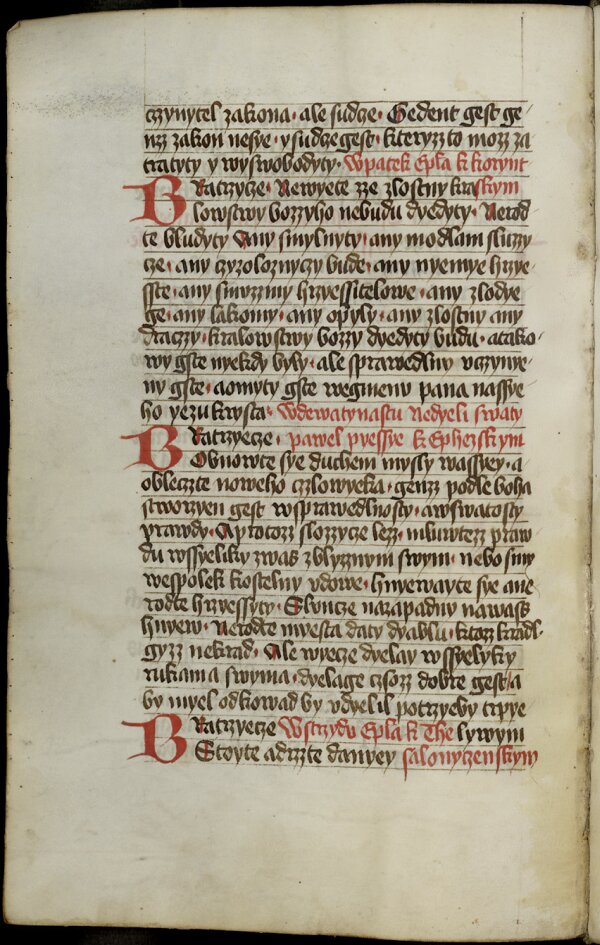 czynytel zakona · ale sudcze · Gedent gest ge
nzz zakon nesye · y sudcze gest · kteryzz to mozz za
tratyty y wyswobodyty · Wpatek Epla k korynt
Bratrzycze · Newyete zze zlostny kra skym
lowstwy bozzyho nebudu dyedyty · Nerod
te bludyty Any smylnyty · any modlam sluzzy
cze · any czyzoloznyczy bude · any nyemye hrzye
sste · any smyzzmy hrzyessitelowe · any zlodye
ge · any lakomy · any opyly · any zlostny any
draczy · kralowstwy bozzy dyedyty budu · a tako
wy gste nyekdy byly · ale sprawedlny vczynye
ny gste · a omyty gste wegmenu pana nassye
ho yezukrysta · Wdewatynastu Nedyeli swaty
Bratrzyecze · pawel pyessye k Ephezskym
Obnowte sye duchem mysly wassyey · a
obleczte noweho czlowyeka · genzz podle boha
stworzyen gest wsprawedlnosty · a wswatosty
prawdy · A protozz slozzycze lezz · mluwtezz praw
du wssyeliky zwas zblyznym swym · nebo smy
wespolek kostelny vdowe · hnyewayte sye a ne
rodte hrzyessyty · Sluncze nazapadny nawass
hnyew · Nerodte myesta daty dyablu · ktozz kradl
gyzz nekrad · Ale wyecze dyelay wssyelyky
rukama swyma · dyelage czsozz dobre gest / a
by myel odkowad by vdyelil potrzyeby trpye
Bratrzyecze Wstrzydu Epla k The lywym
Stoyte a drzzte danyey salonyczenskym